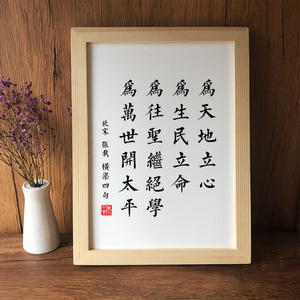 爲天地立心
爲生民立命
爲往聖繼絕學
爲萬世開太平
北宋 張載 橫渠四句